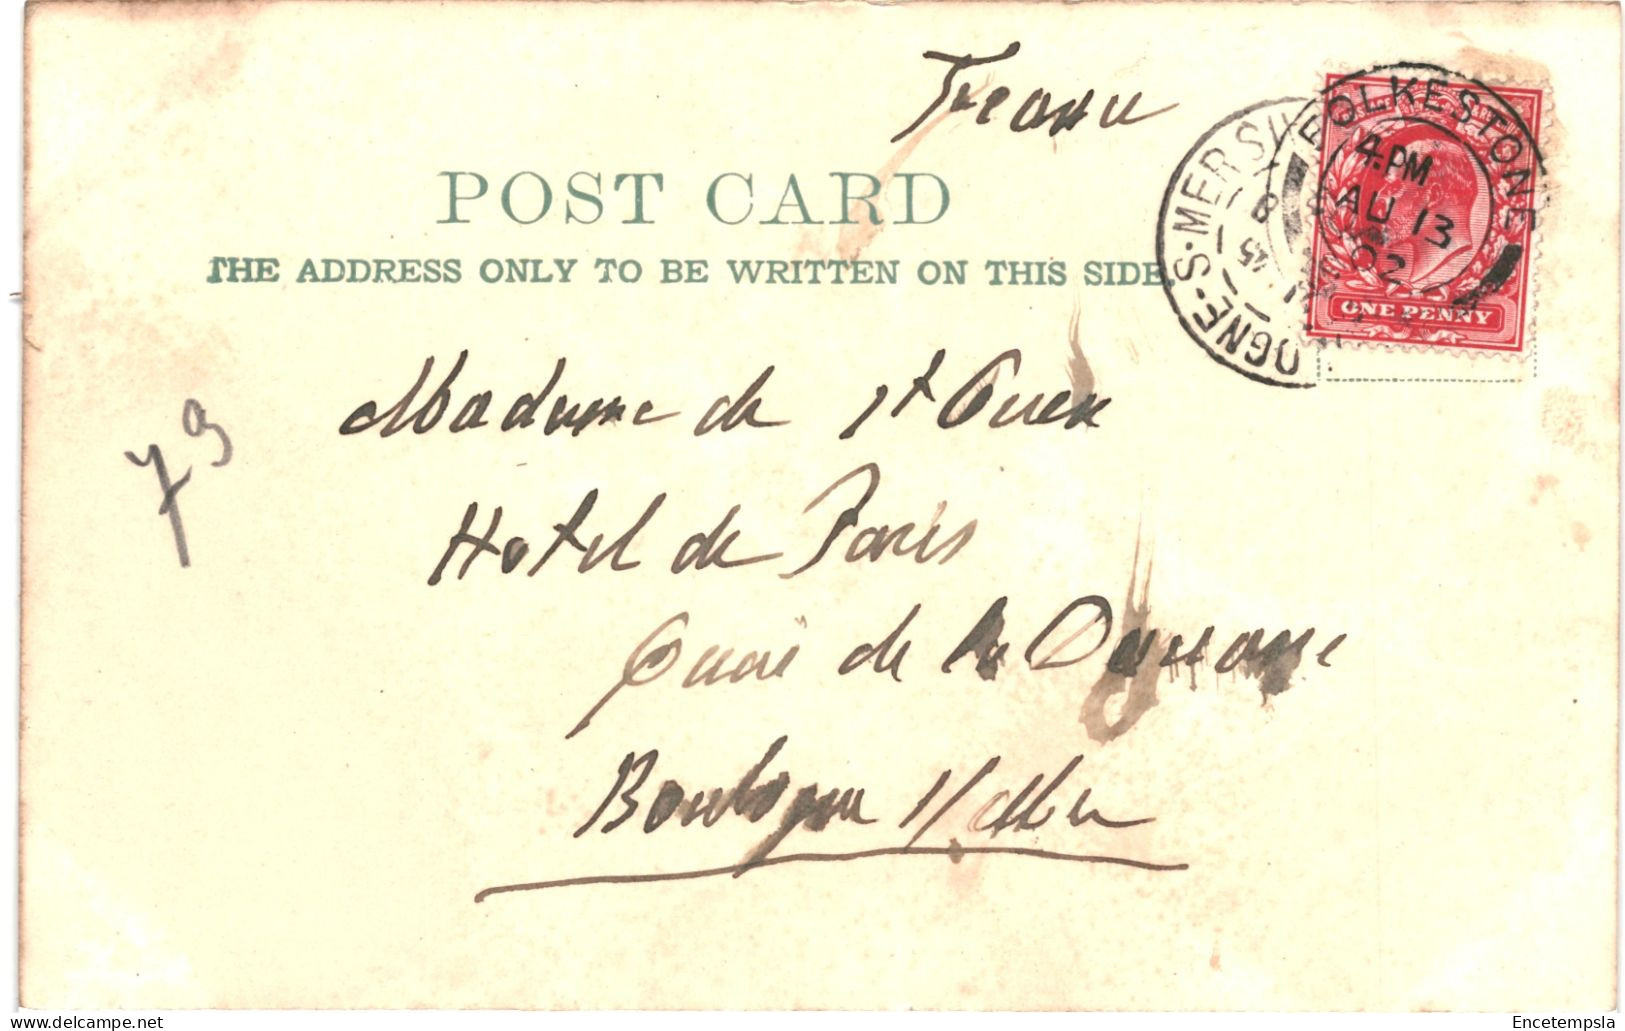 POST CARD
THE ADDRESS ONLY TO BE WRITTEN ON THIS SIDE.
FOLKESTONE
4.PM
AU 13
02
OGNE-S-MER
ONE PENNY
Madame de St Ouen
Hotel de Paris
Quai de la Douane
Boulogne s/ Mer
79
© delcampe.net
Encetempsla